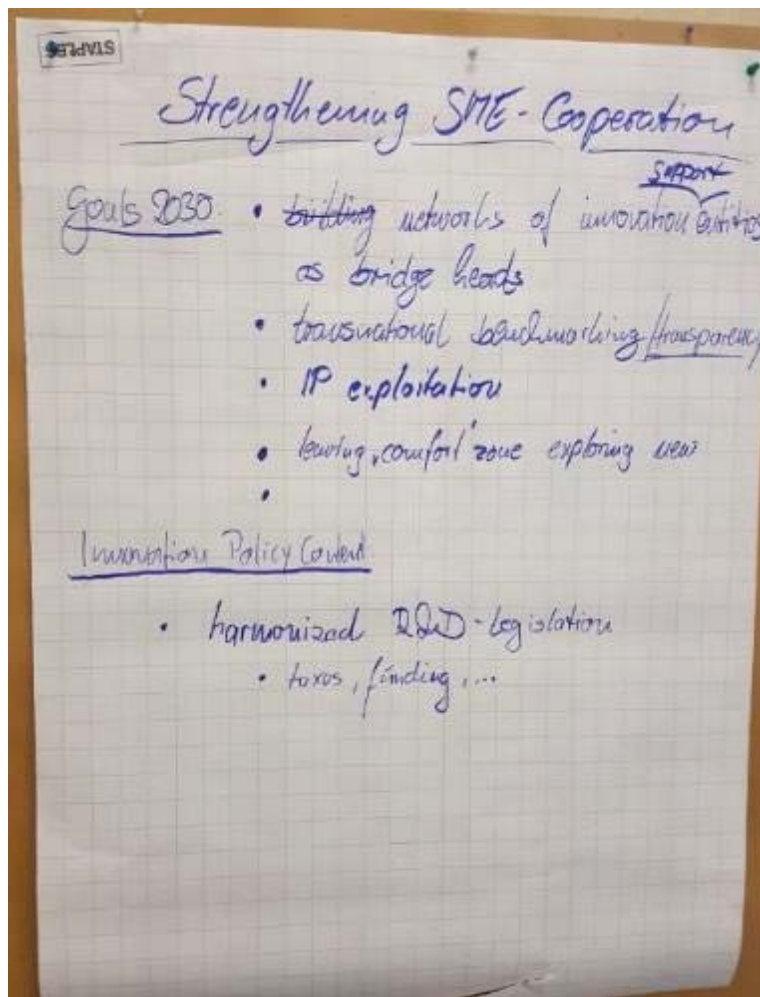 STAPLES
Strengthening SME-Cooperation
support
Goals 2030 • building networks of innovation entities
as bridge heads
• transnational benchmarking/transparency
• IP exploitation
• leaving "comfort" zone exploring new
•
Innovation Policy Content
• harmonized R&D-legislation
• taxes, funding,...